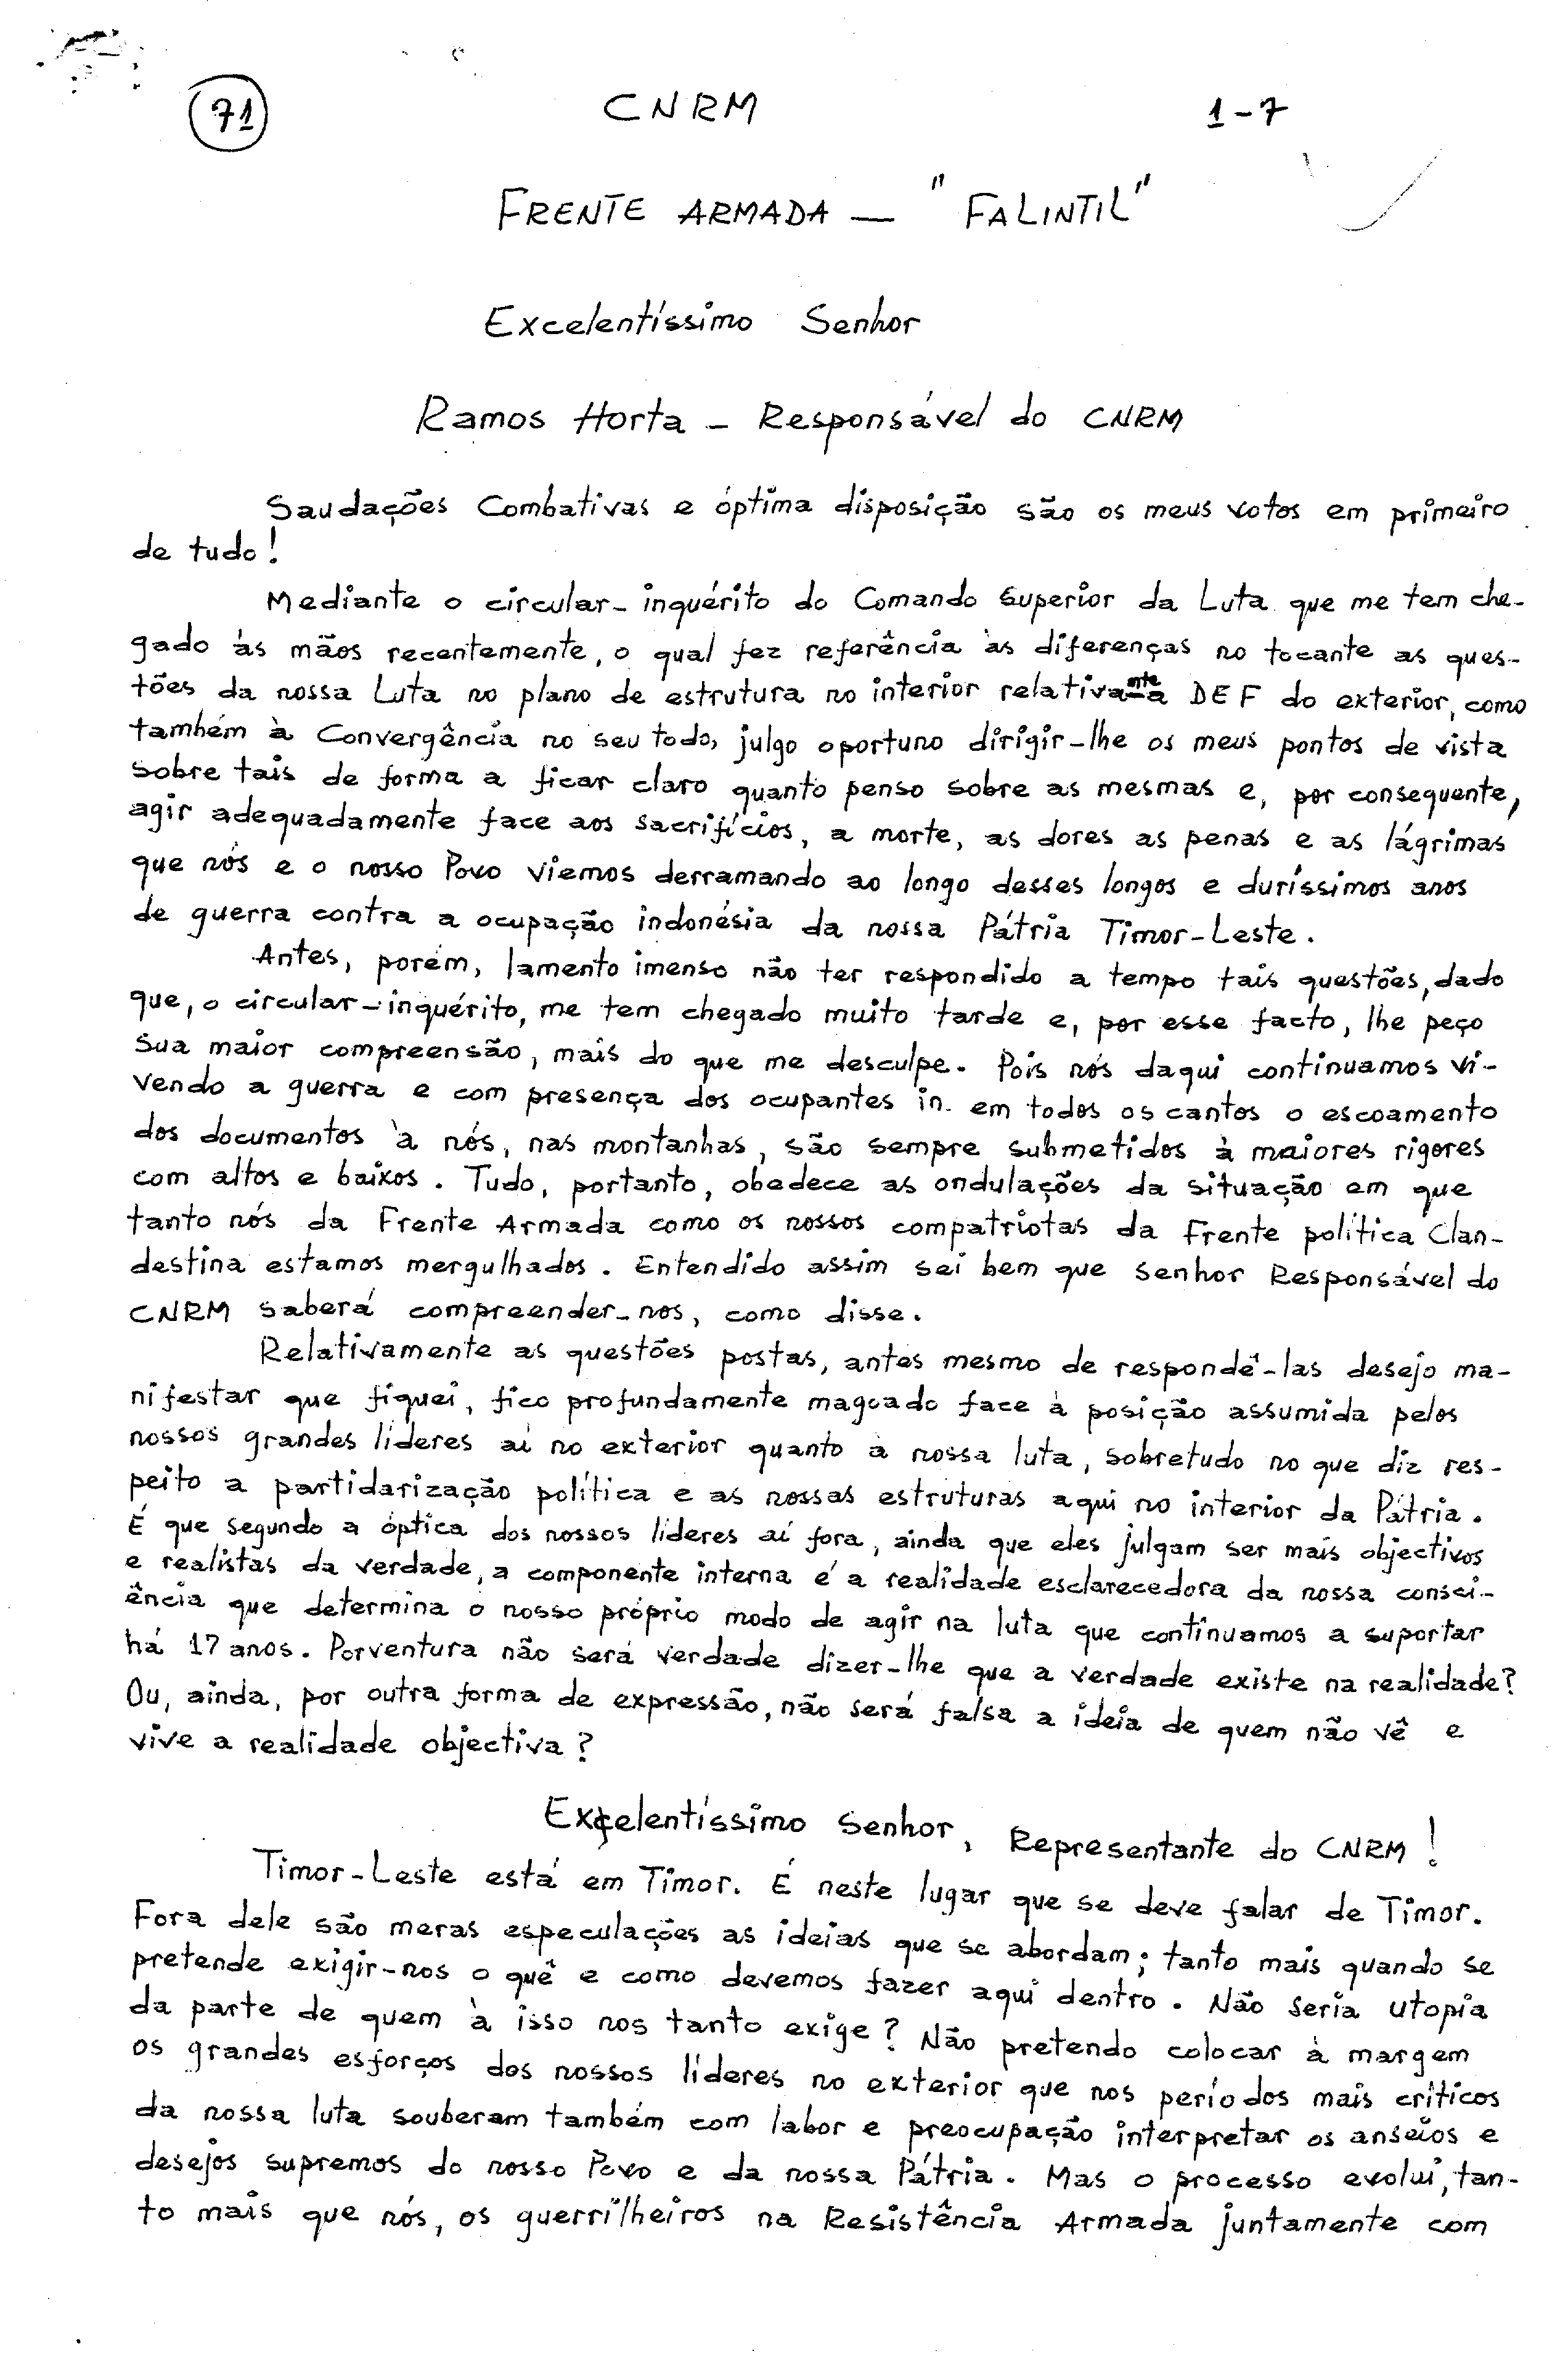 71 CNRM 1-7
FRENTE ARMADA — "FALINTIL"
Excelentíssimo Senhor
Ramos Horta - Responsável do CNRM
Saudações Combativas e óptima disposição são os meus votos em primeiro
de tudo!
Mediante o circular-inquérito do Comando Superior da Luta que me tem che-
gado às mãos recentemente, o qual fez referência às diferenças no tocante as ques-
tões da nossa Luta no plano de estrutura no interior relativamente a DEF do exterior, como
também à Convergência no seu todo, julgo oportuno dirigir-lhe os meus pontos de vista
sobre tais de forma a ficar claro quanto penso sobre as mesmas e, por consequente,
agir adequadamente face aos sacrifícios, a morte, as dores as penas e as lágrimas
que nós e o nosso Povo viemos derramando ao longo desses longos e duríssimos anos
de guerra contra a ocupação indonésia da nossa Pátria Timor-Leste.
Antes, porém, lamento imenso não ter respondido a tempo tais questões, dado
que, o circular-inquérito, me tem chegado muito tarde e, por esse facto, lhe peço
sua maior compreensão, mais do que me desculpe. Pois nós daqui continuamos vi-
vendo a guerra e com presença dos ocupantes in. em todos os cantos o escoamento
dos documentos à nós, nas montanhas, são sempre submetidos à maiores rigores
com altos e baixos. Tudo, portanto, obedece as ondulações da situação em que
tanto nós da Frente Armada como os nossos compatriotas da Frente política Clan-
destina estamos mergulhados. Entendido assim sei bem que Senhor Responsável do
CNRM saberá compreender-nos, como disse.
Relativamente as questões postas, antes mesmo de respondê-las desejo ma-
nifestar que fiquei, fico profundamente magoado face à posição assumida pelos
nossos grandes líderes aí no exterior quanto à nossa luta, sobretudo no que diz res-
peito a partidarização política e as nossas estruturas aqui no interior da Pátria.
É que segundo a óptica dos nossos líderes aí fora, ainda que eles julgam ser mais objectivos
e realistas da verdade, a componente interna é a realidade esclarecedora da nossa consci-
ência que determina o nosso próprio modo de agir na luta que continuamos a suportar
há 17 anos. Porventura não será verdade dizer-lhe que a verdade existe na realidade?
Ou, ainda, por outra forma de expressão, não será falsa a ideia de quem não vê e
vive a realidade objectiva?
Excelentíssimo Senhor, Representante do CNRM!
Timor-Leste está em Timor. É neste lugar que se deve falar de Timor.
Fora dele são meras especulações as ideias que se abordam; tanto mais quando se
pretende exigir-nos o quê e como devemos fazer aqui dentro. Não seria utopia
da parte de quem à isso nos tanto exige? Não pretendo colocar à margem
os grandes esforços dos nossos líderes no exterior que nos períodos mais críticos
da nossa luta souberam também com labor e preocupação interpretar os anseios e
desejos supremos do nosso Povo e da nossa Pátria. Mas o processo evolui, tan-
to mais que nós, os guerrilheiros na Resistência Armada juntamente com